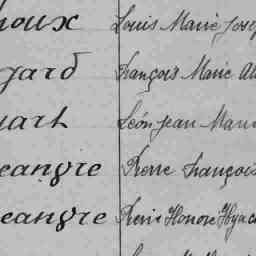 houx Louis Marie Josep
gard François Marie Al
uart Léon Jean Marie
eangre Pierre François
eangre Pierre Honoré Hyac